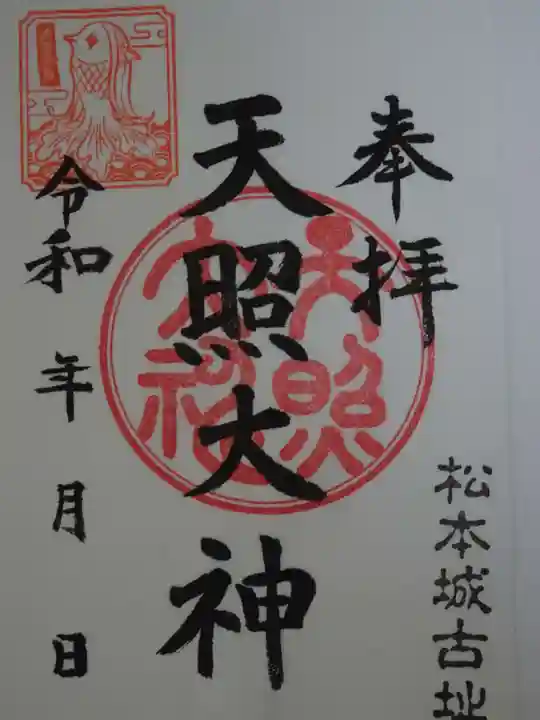 奉拝
松本城古址
天照大神
令和 年 月 日